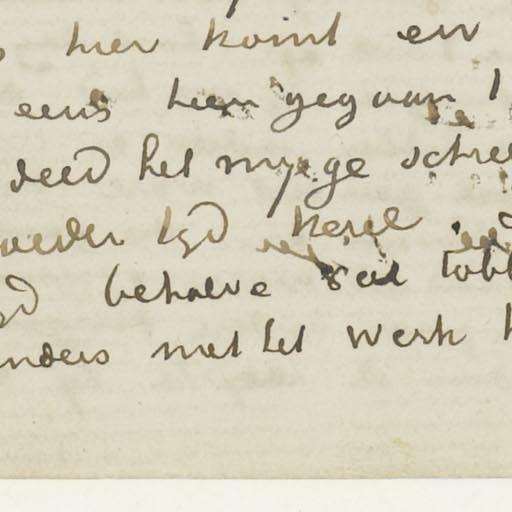 hier komt en
eens heen gegaan
deed het my ge schre
weder tyd kerel
behalve dat tobb
nders met het werk h